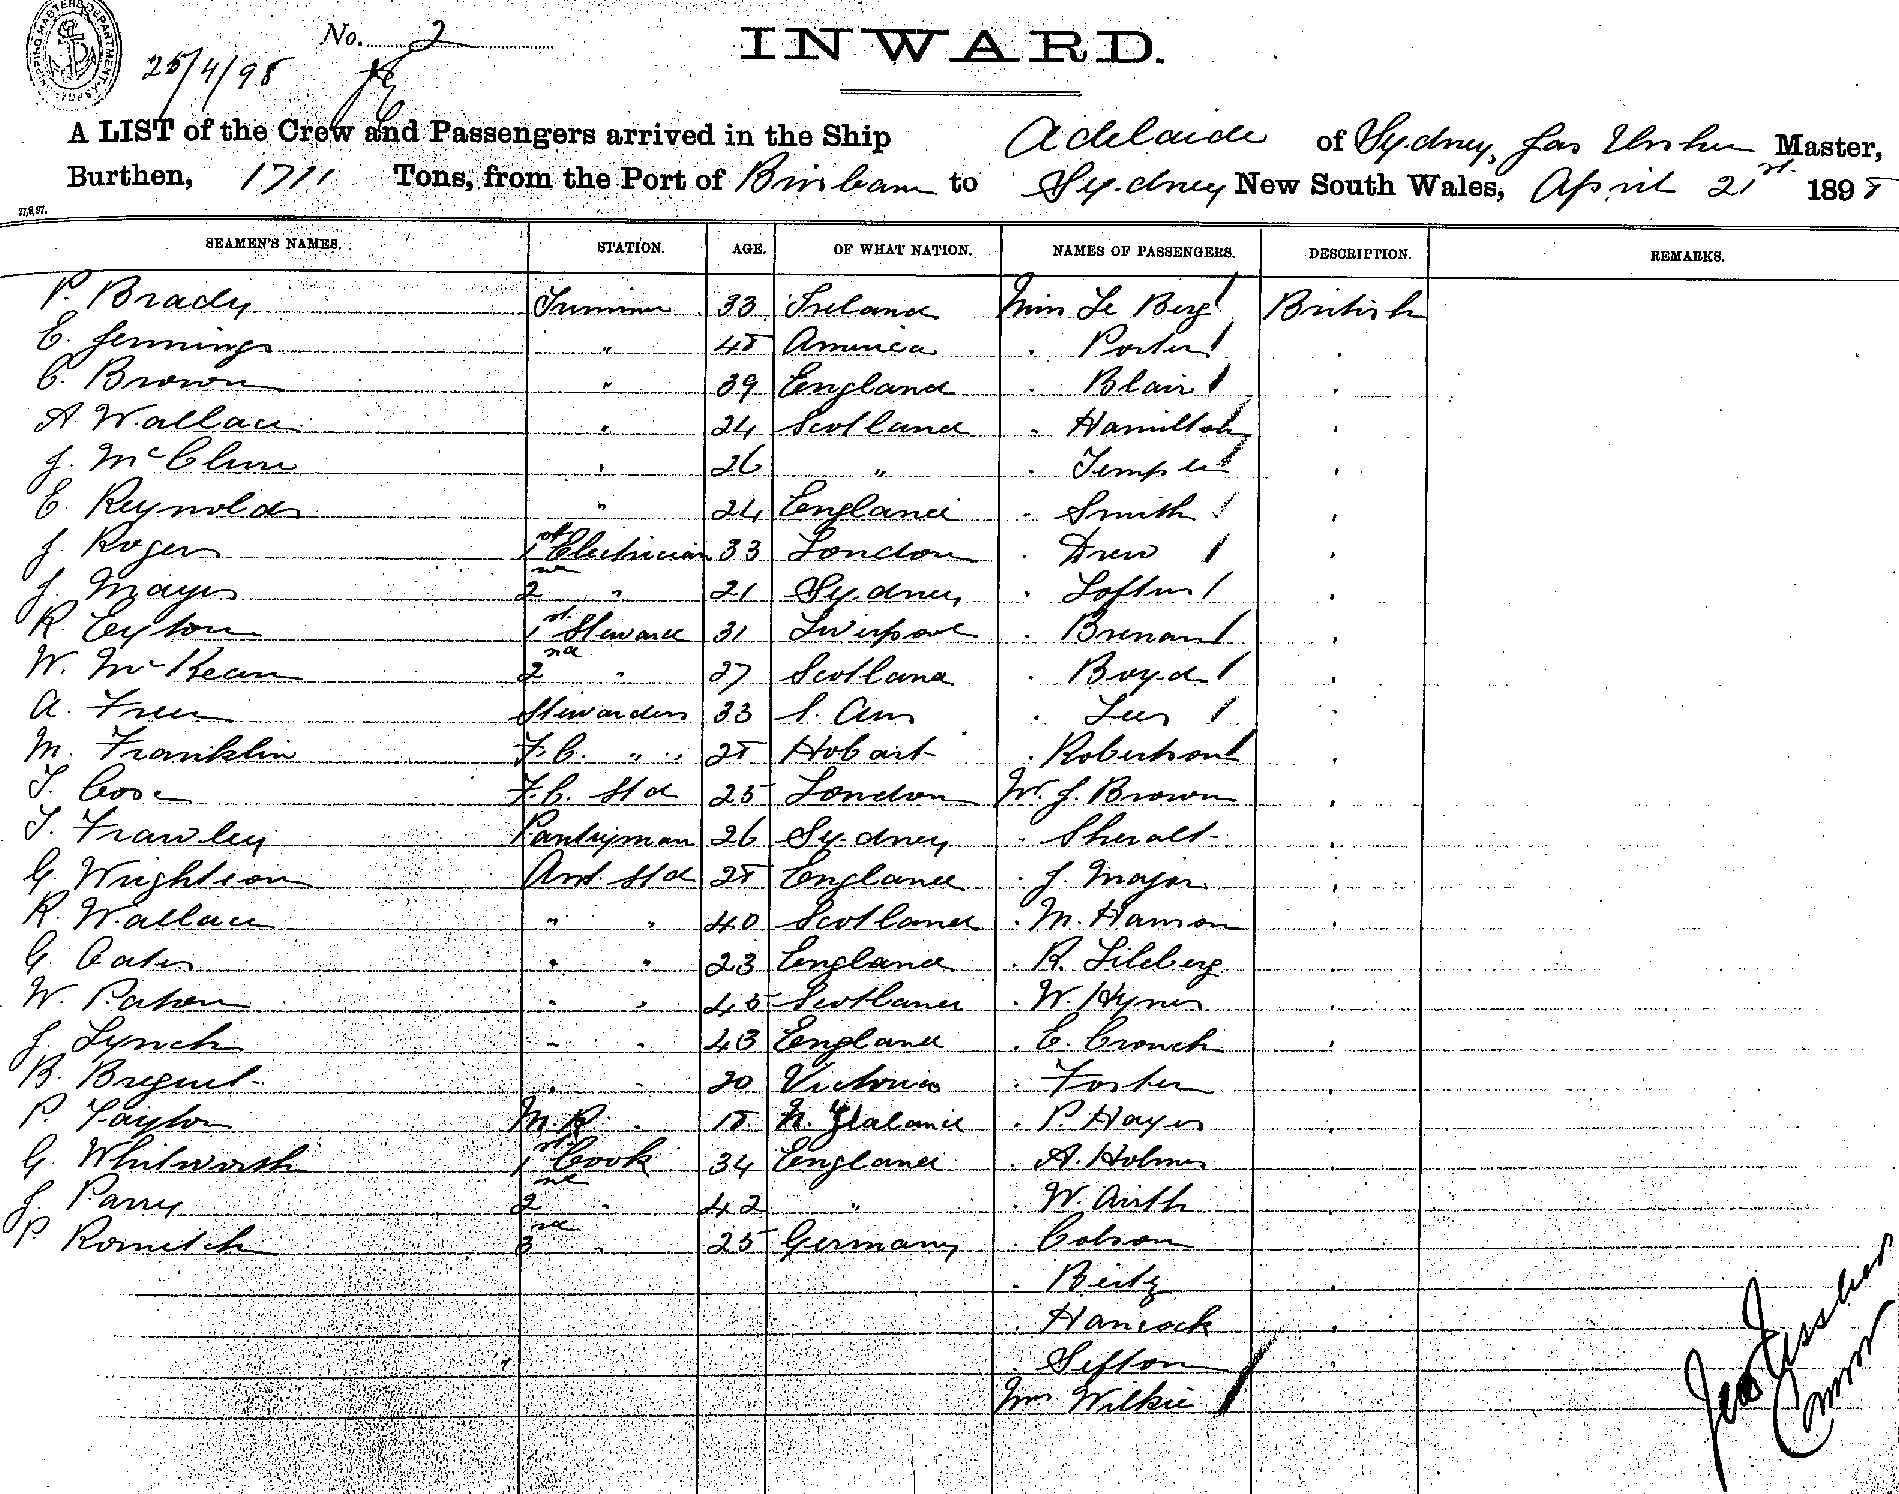 No. 2
INWARD.
25/4/98
A LIST of the Crew and Passengers arrived in the Ship Adelaide of Sydney, Jas Master,
Burthen, 1711 Tons, from the Port of Brisbane to Sydney New South Wales, April 21st 1898
SEAMEN'S NAMES. STATION. AGE. OF WHAT NATION. NAMES OF PASSENGERS. DESCRIPTION. REMARKS.
P. Brady Trimmer 33 Ireland Miss Le Berg British
E. Jennings " 48 America " Porter "
C. Brown " 39 England " Blair "
A Wallace " 24 Scotland " Hamilton "
J. McClure " 26 " " Temple "
E. Reynolds " 24 England " Smith "
J. Rogers 1st Electrician 33 London " Drew "
J. Mayes 2nd " 21 Sydney " Loftus "
R. Leyton 1st Steward 31 Liverpool " Brenan "
W. McKean 2nd " 27 Scotland " Boyd "
A. Free Stewardess 33 S. Aus " Lees "
M. Franklin F.C. " " 28 Hobart " Robertson "
T. F.C. Std 25 London Mr J. Brown "
T. Frawley Pantryman 26 Sydney " "
G. Wrightson Asst Std 28 England " J. Major "
R. Wallace " " 40 Scotland " M. Hanson "
G. Cates " " 23 England " R. Lileberg "
W. Paton " " 45 Scotland " W. Hynes "
J. Lynch " " 43 England " E. Crouch "
B. Breguet " " 20 Victoria " Foster "
P. Taylor M.R. " 18 N. Zealand " P. Hayes "
G. Whitworth 1st Cook 34 England " A. Holmes "
J. Parry 2nd " 42 " " W. Airth "
P Rometch 3rd " 25 Germany " Cobson "
" Beitz "
" Hancock "
" Sefton "
Mrs Wilkie